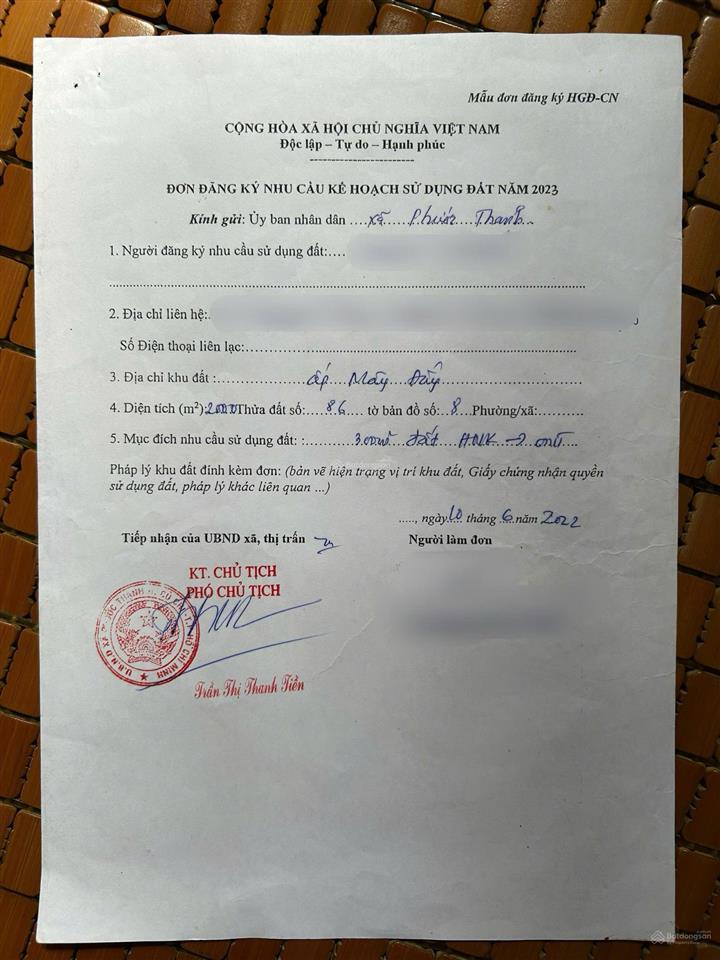 Mẫu đơn đăng ký HGĐ-CN
CỘNG HÒA XÃ HỘI CHỦ NGHĨA VIỆT NAM
Độc lập – Tự do – Hạnh phúc
ĐƠN ĐĂNG KÝ NHU CẦU KẾ HOẠCH SỬ DỤNG ĐẤT NĂM 2023
Kính gửi: Ủy ban nhân dân ....xã Phước Thạnh..
1. Người đăng ký nhu cầu sử dụng đất:....
2. Địa chỉ liên hệ:
Số Điện thoại liên lạc:
3. Địa chỉ khu đất : ấp Mây Đắng
4. Diện tích (m²): Thửa đất số: 86 tờ bản đồ số: 8 Phường/xã:
5. Mục đích nhu cầu sử dụng đất: : đất HNK →
Pháp lý khu đất đính kèm đơn: (bản vẽ hiện trạng vị trí khu đất, Giấy chứng nhận quyền
sử dụng đất, pháp lý khác liên quan ...)
....., ngày 10 tháng 6 năm 2022
Tiếp nhận của UBND xã, thị trấn
Người làm đơn
KT. CHỦ TỊCH
PHÓ CHỦ TỊCH
U.B.N.D XÃ PHƯỚC THẠNH H. CỦ CHI - T.P HỒ CHÍ MINH
Trần Thị Thanh Tiền
Batdongsan